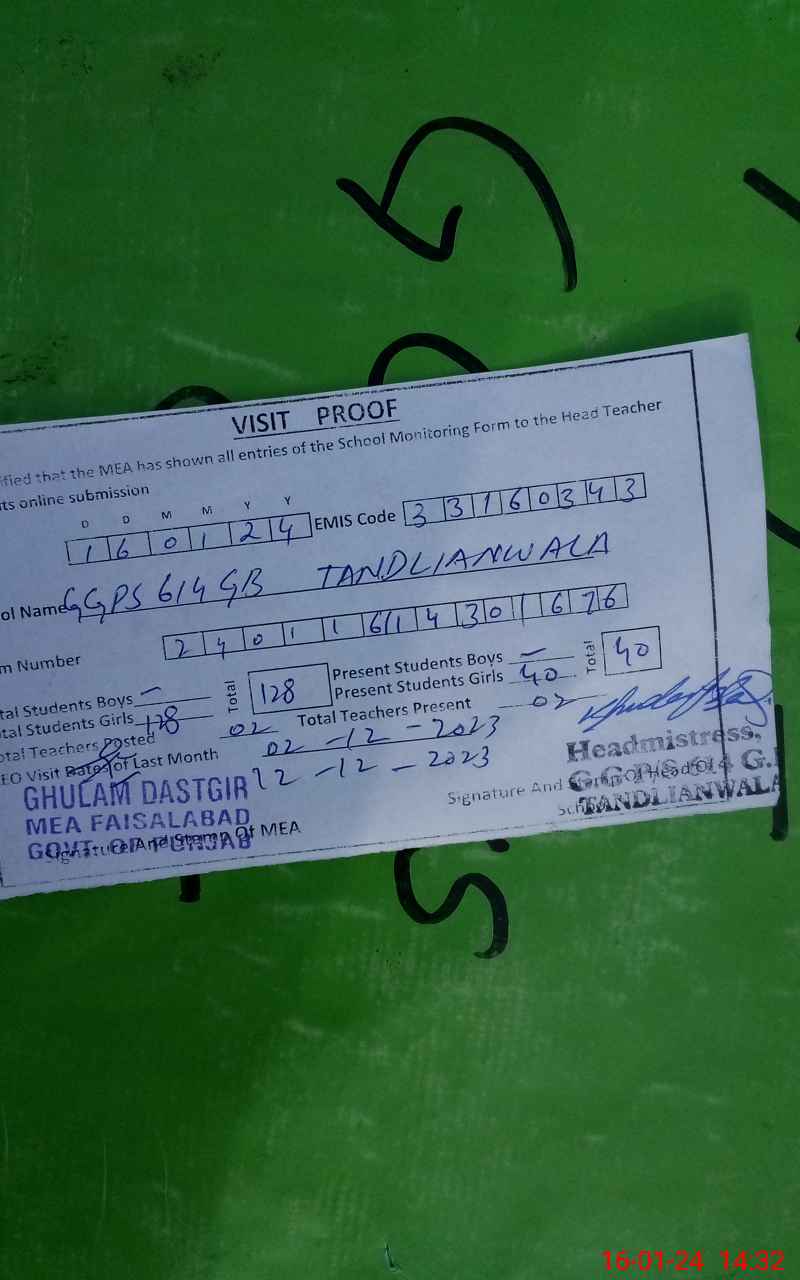 VISIT PROOF
ified that the MEA has shown all entries of the School Monitoring Form to the Head Teacher
its online submission
D D M M Y Y
160124 EMIS Code 33160343
ol Name GGPS 614 GB TANDLIANWALA
m Number 24011614301676
tal Students Boys — Total 128 Present Students Boys — Total 40
tal Students Girls 128 Present Students Girls 40
otal Teachers Posted 02 Total Teachers Present 02
EO Visit Dates of Last Month 02-12-2023
12-12-2023
GHULAM DASTGIR
MEA FAISALABAD
GOVT. OF PUNJAB
Signature And Stamp Of MEA
Headmistress,
G.G.P/S 614 G.
TANDLIANWALA
Signature And Of Head Of
16-01-24 14:32